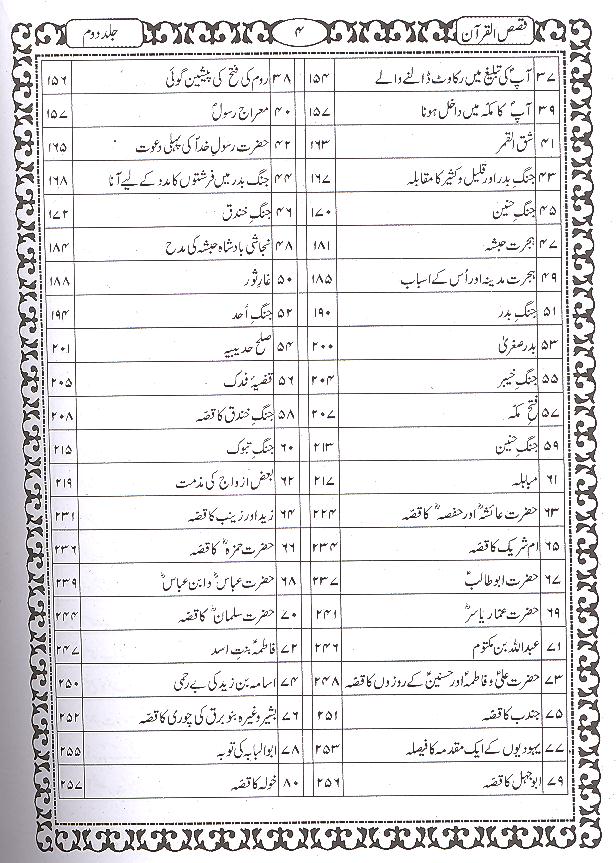 قصص القرآن ۴ جلد دوم
۳۷ آپؐ کی تبلیغ میں رکاوٹ ڈالنے والے ۱۵۴ ۳۸ روم کی فتح کی پیشین گوئی ۱۵۶
۳۹ آپؐ کا مکہ میں داخل ہونا ۱۵۷ ۴۰ معراج رسولؐ ۱۵۷
۴۱ شق القمر ۱۶۳ ۴۲ حضرت رسول خداؐ کی پہلی دعوت ۱۶۵
۴۳ جنگِ بدر اور قلیل و کثیر کا مقابلہ ۱۶۷ ۴۴ جنگ بدر میں فرشتوں کا مدد کے لیے آنا ۱۶۸
۴۵ جنگِ حنین ۱۷۰ ۴۶ جنگِ خندق ۱۷۲
۴۷ ہجرت حبشہ ۱۸۱ ۴۸ نجاشی بادشاہ حبشہ کی مدح ۱۸۴
۴۹ ہجرت مدینہ اور اُس کے اسباب ۱۸۵ ۵۰ غارِ ثور ۱۸۸
۵۱ جنگِ بدر ۱۹۰ ۵۲ جنگِ اُحد ۱۹۴
۵۳ بدر صغریٰ ۲۰۰ ۵۴ صلح حدیبیہ ۲۰۱
۵۵ جنگِ خیبر ۲۰۴ ۵۶ قضیۂ فدک ۲۰۵
۵۷ فتحِ مکہ ۲۰۷ ۵۸ جنگِ خندق کا قصّہ ۲۰۸
۵۹ جنگِ حنین ۲۱۳ ۶۰ جنگِ تبوک ۲۱۵
۶۱ مباہلہ ۲۱۷ ۶۲ بعض ازواج کی مذمت ۲۱۹
۶۳ حضرت عائشہؓ اور حفصہؓ کا قصّہ ۲۲۴ ۶۴ زید اور زینب کا قصّہ ۲۳۱
۶۵ ام شریک کا قصّہ ۲۳۴ ۶۶ حضرت حمزہؓ کا قصّہ ۲۳۶
۶۷ حضرت ابو طالبؑ ۲۳۷ ۶۸ حضرت عباسؓ و ابن عباسؓ ۲۳۹
۶۹ حضرت عمّار یاسرؓ ۲۴۱ ۷۰ حضرت سلمانؓ کا قصّہ ۲۴۴
۷۱ عبداللہ بن مکتوم ۲۴۶ ۷۲ فاطمہؑ بنت اسد ۲۴۷
۷۳ حضرت علیؑ و فاطمہؑ اور حسنینؑ کے روزوں کا قصّہ ۲۴۸ ۷۴ اسامہ بن زید کی بے رحمی ۲۵۰
۷۵ جندب کا قصّہ ۲۵۱ ۷۶ بشیر وغیرہ بنو برق کی چوری کا قصّہ ۲۵۲
۷۷ یہودیوں کے ایک مقدمہ کا فیصلہ ۲۵۳ ۷۸ ابو لبابہ کی توبہ ۲۵۵
۷۹ ابو جہل کا قصّہ ۲۵۶ ۸۰ خولہ کا قصّہ ۲۵۷